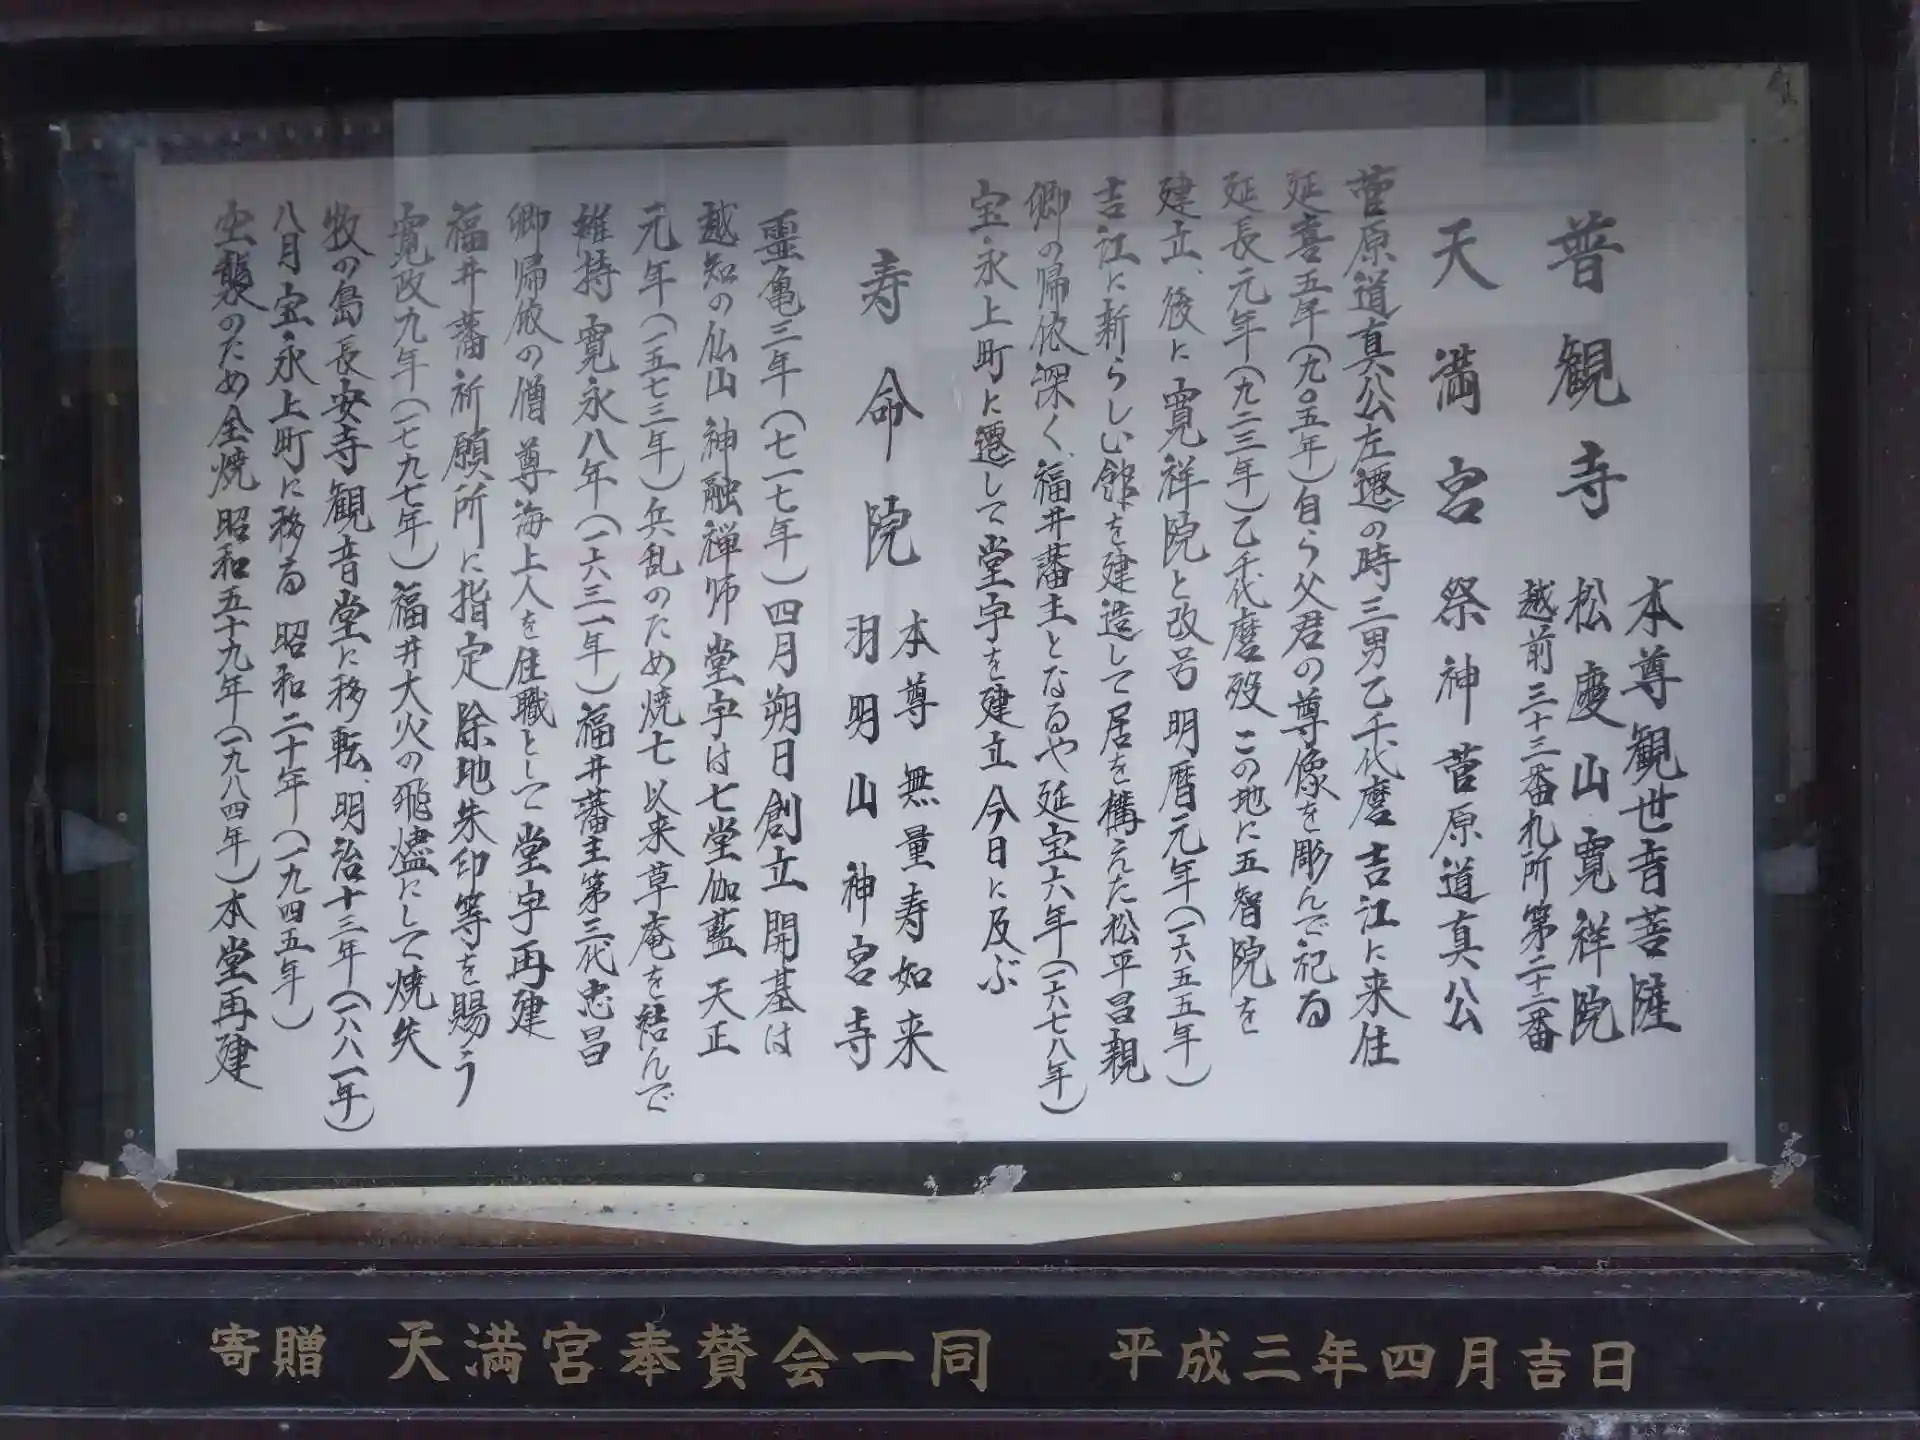 普観寺
本尊観世音菩薩
松慶山寛祥院
越前三十三番札所第二十二番
天満宮 祭神 菅原道真公
菅原道真公左遷の時三男乙千代麿吉江に来住
延喜五年(九〇五年)自ら父君の尊像を彫んで祀る
延長元年(九二三年)乙千代麿歿この地に五智院を
建立、後に寛祥院と改号明暦元年(一六五五年)
吉江に新らしい館を建造して居を構えた松平昌親
卿の帰依深く、福井藩主となるや延宝六年(一六七八年)
宝永上町に遷して堂宇を建立今日に及ぶ
寿命院
本尊 無量寿如来
羽明山 神宮寺
霊亀三年(七一七年)四月朔日創立開基は
越知の仏山神融禅师堂宇は七堂伽藍天正
元年(一五七三年)兵乱のため焼亡以来草庵を結んで
維持寛永八年(一六三一年)福井藩主第三代忠昌
卿帰依の僧尊海上人を住職として堂宇再建
福井藩祈願所に指定除地朱印等を賜う
寛政九年(一七九七年)福井大火の飛燼にして焼失
牧の島長安寺観音堂に移転、明治十三年(一八八一年)
八月宝永上町に移る 昭和二十年(一九四五年)
空襲のため全焼昭和五十九年(一九八四年)本堂再建
寄贈 天満宮奉賛会一同 平成三年四月吉日